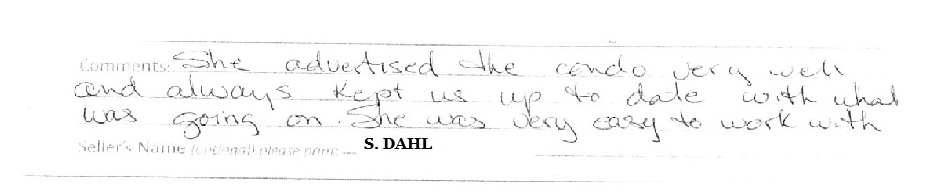 Comments: She advertised the condo very well
and always kept us up to date with what
was going on. She was very easy to work with
Seller's Name (optional) please print S. DAHL